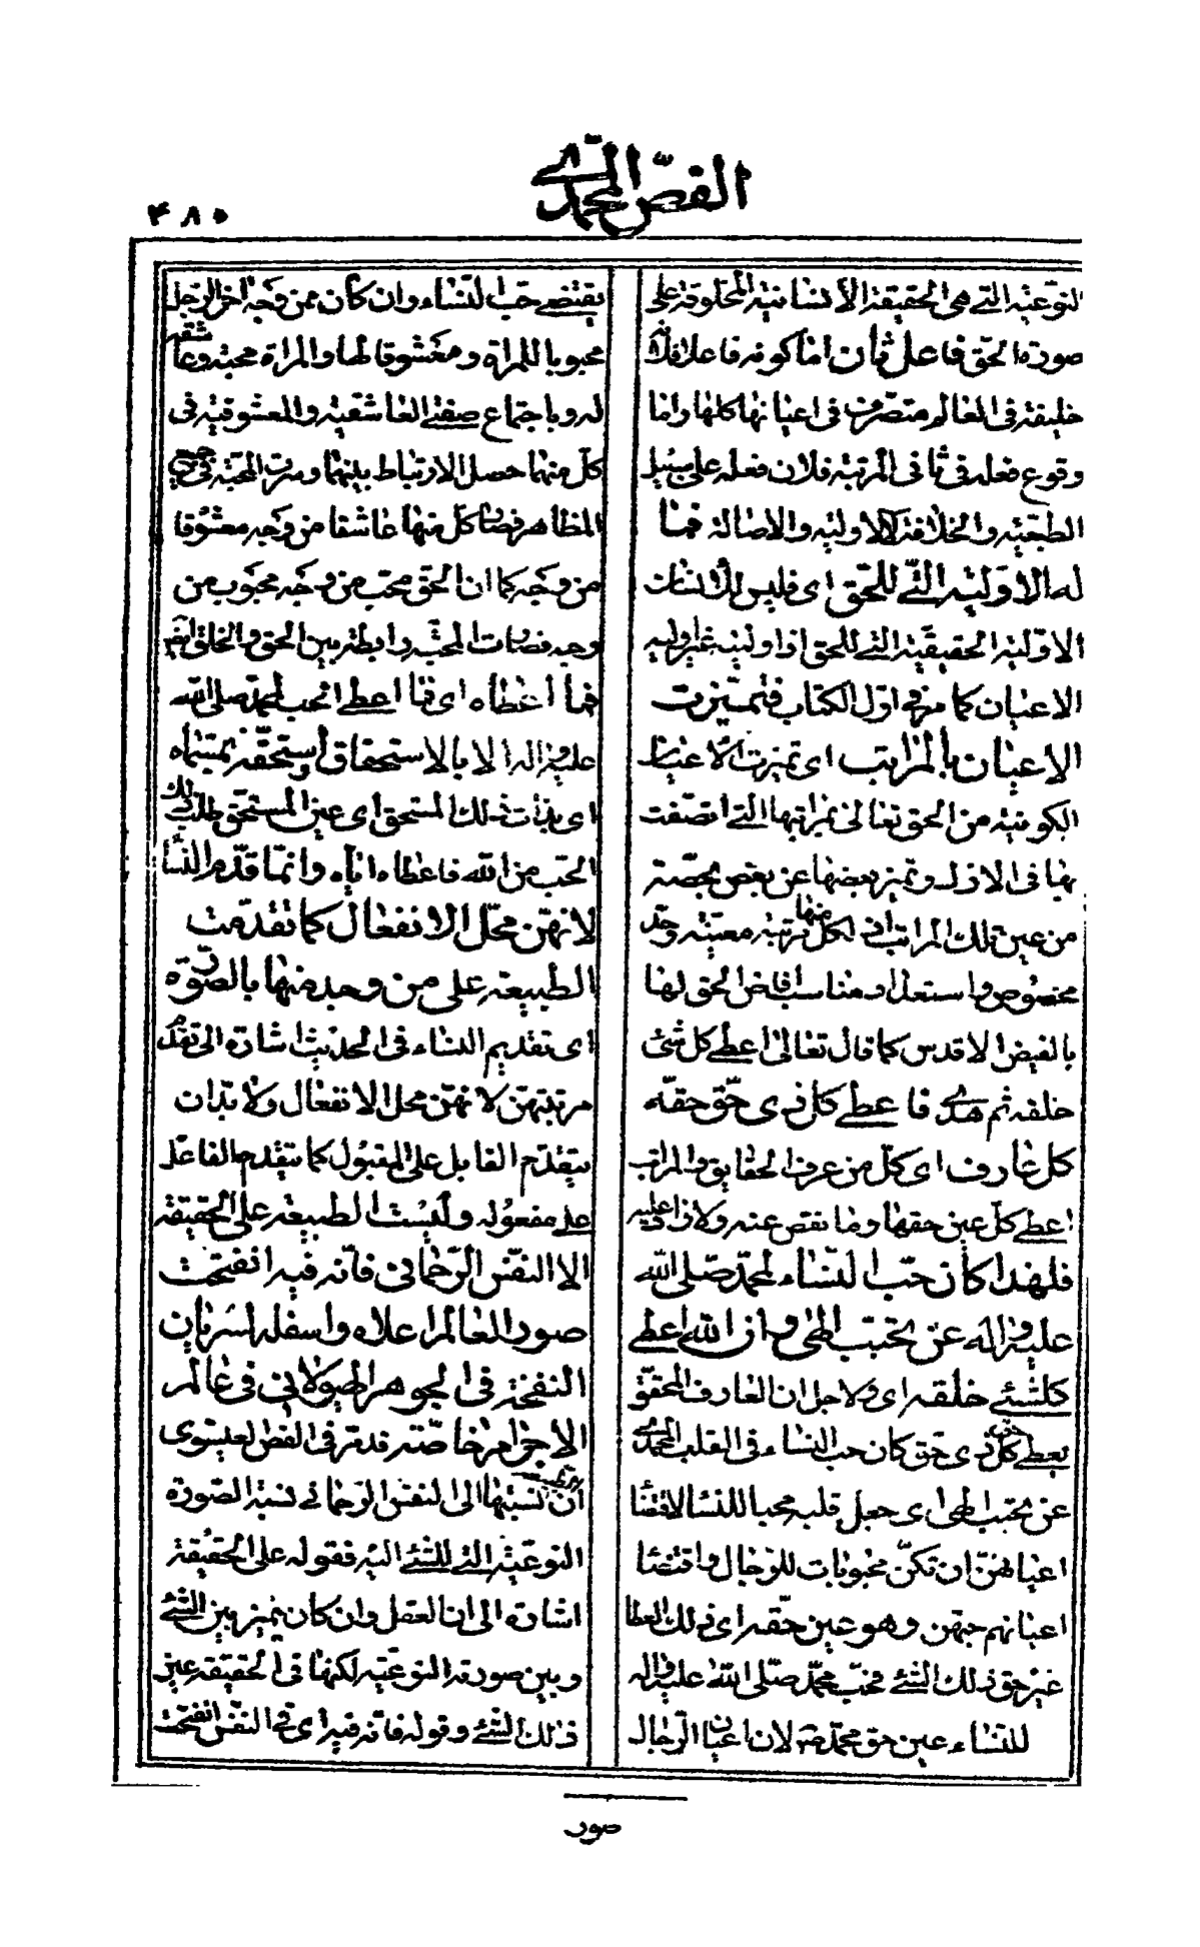 الفصّ المحمّدي
۴۸۵
النوعيّة التي هى الحقيقة الانسانية المخلوقة على
صورة الحق فاعل ثان اما كونه فاعلا فلانه
خليفة فى العالم متصرف فى اعيانها كلها واما
وقوع فعله فى ثانى المرتبة فلان فعله على سبيل
الطبعيّة والخلافة لا الاولية والاصالة فما
له الاوّلية التّي للحق اى فليس للانسان
الاوّلية الحقيقيّة التي للحق اذ اولية غير اولية
الاعيان كما مر فى اوّل الكتاب فتميّزت
الاعيان بالمراتب اى تميزت الاعيان
الكونية من الحق تعالى بمراتبها التي اتصفت
بها فى الازل وتميز بعضها عن بعض بحصّة
من عين تلك المراتب اذ لكل منها مرتبة معيّنة وحدّ
مخصوص واستعداد مناسب افاض الحق لها
بالفيض الاقدس كما قال تعالى اعطى كل شئ
خلقه ثم هدى فاعطى كل ذى حقّ حقّه
كل عارف اى كلّ من عرف الحقايق والمراتب
اعطى كلّ عين حقها وما نقص عنه ولا زاد عليه
فلهذا كان حبّ النّساء لمحمّد صلى اللّه
عليه واله عن تحبّب الهى وان اللّه اعطى
كلشئ خلقه اى ولاجل ان العارف المحقق
يعطى كل ذى حق حقه كان حب النساء فى القلب المحمدى
عن تحبّب الهى اى جعل قلبه محبا للنساء لاقتضاء
اعيانهنّ ان تكنّ محبوبات للرجال واقتضاء
اعيانهم حبهن وهو عين حقّه اى ذلك العطا
عين حق ذلك الشئ فحبّ محمّد صلّى اللّه عليه واله
للنّساء عين حق محمّد ص لان اعيان الرّجال
يقتضى حبّ النّساء وان كان من وجه اخر الرّجل
محبوبا للمراة ومعشوقا لها والمراة محبة وعاشقة
له وباجتماع صفتى العاشقية والمعشوقية فى
كلّ منهما حصل الارتباط بينهما وسرت المحبّة فى جميع
المظاهر فصار كل منها عاشقا من وجه معشوقا
من وجه كما ان الحق محبّ من وجه محبوب من
وجه فصارت المحبّة رابطة بين الحق والخلق ايضا
فما اعطاه اى فما اعطى الحب لمحمد صلى اللّه
عليه واله الا بالاستحقاق استحقّه بمسمّاه
اى بذات ذلك المستحق اى عين المستحق طلب ذلك
الحبّ من اللّه فاعطاه ايّاه وانّما قدّم النّساء
لانهنّ محلّ الانفعال كما تقدّمت
الطبيعة على من وجد منها بالصّورة
اى تقديم النساء فى الحديث اشارة الى تقدّم
مرتبتهنّ لانهنّ محل الانفعال ولا بدّ ان
يتقدّم القابل على المقبول كما يتقدم الفاعل
على مفعوله وليست الطبيعة على الحقيقة
الا النّفس الرّحمانى فانّه فيه انفتحت
صور العالم اعلاه واسفله لسريان
النفخة فى الجوهر الهيولانى فى عالم
الاجرام خاصّة قد مرّ فى الفصّ العيسوى
ان نسبتها الى النفس الرّحمانى نسبة الصّورة
النوعيّة التي للشئ اليه فقوله على الحقيقة
اشارة الى ان العقل وان كان يميز بين الشئ
وبين صورته النوعيّة لكنها فى الحقيقة عين
ذلك الشئ وقوله فانه فيه اى فى النفس انفتحت
صور